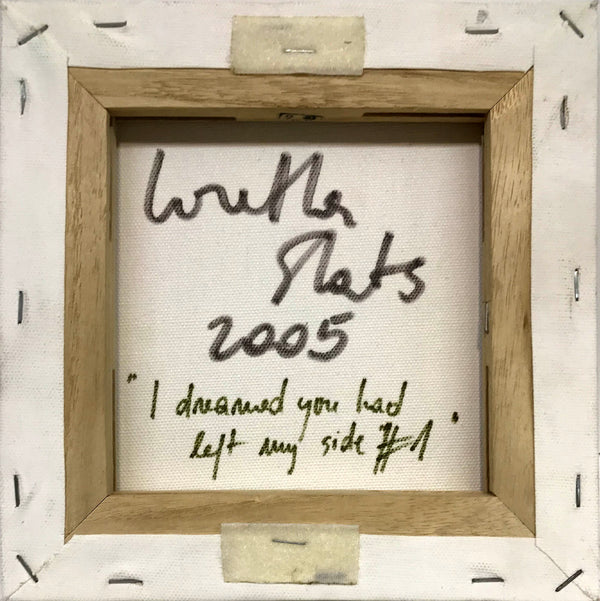 2005
"I dreamed you had
left my side #1"